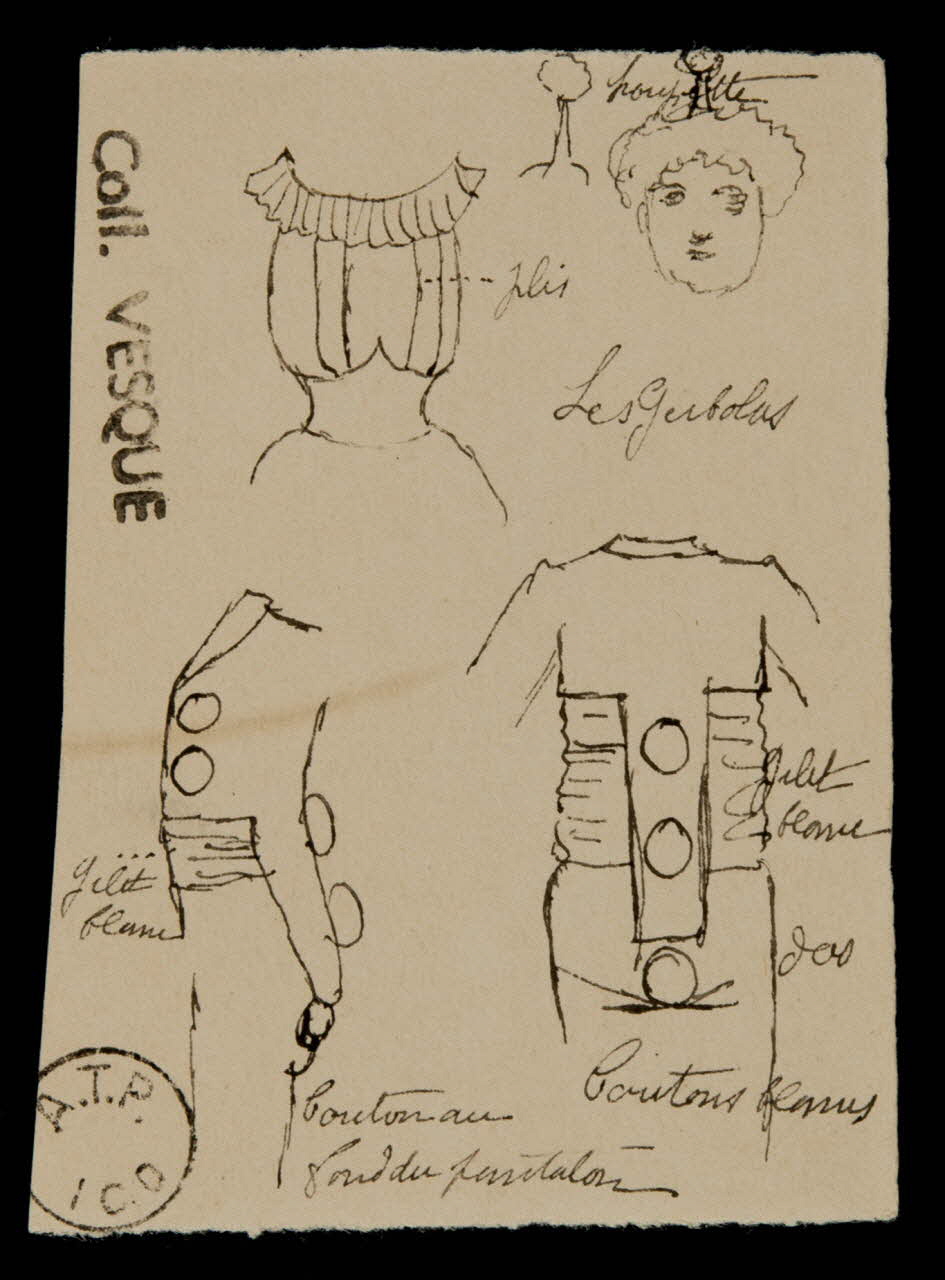 Coll. VESQUE
houpette
plis
Les Gerbolas
gilet
blanc
gilet
blanc
dos
boutons blancs
bouton au
fond du pantalon
A.T.P.
ICO